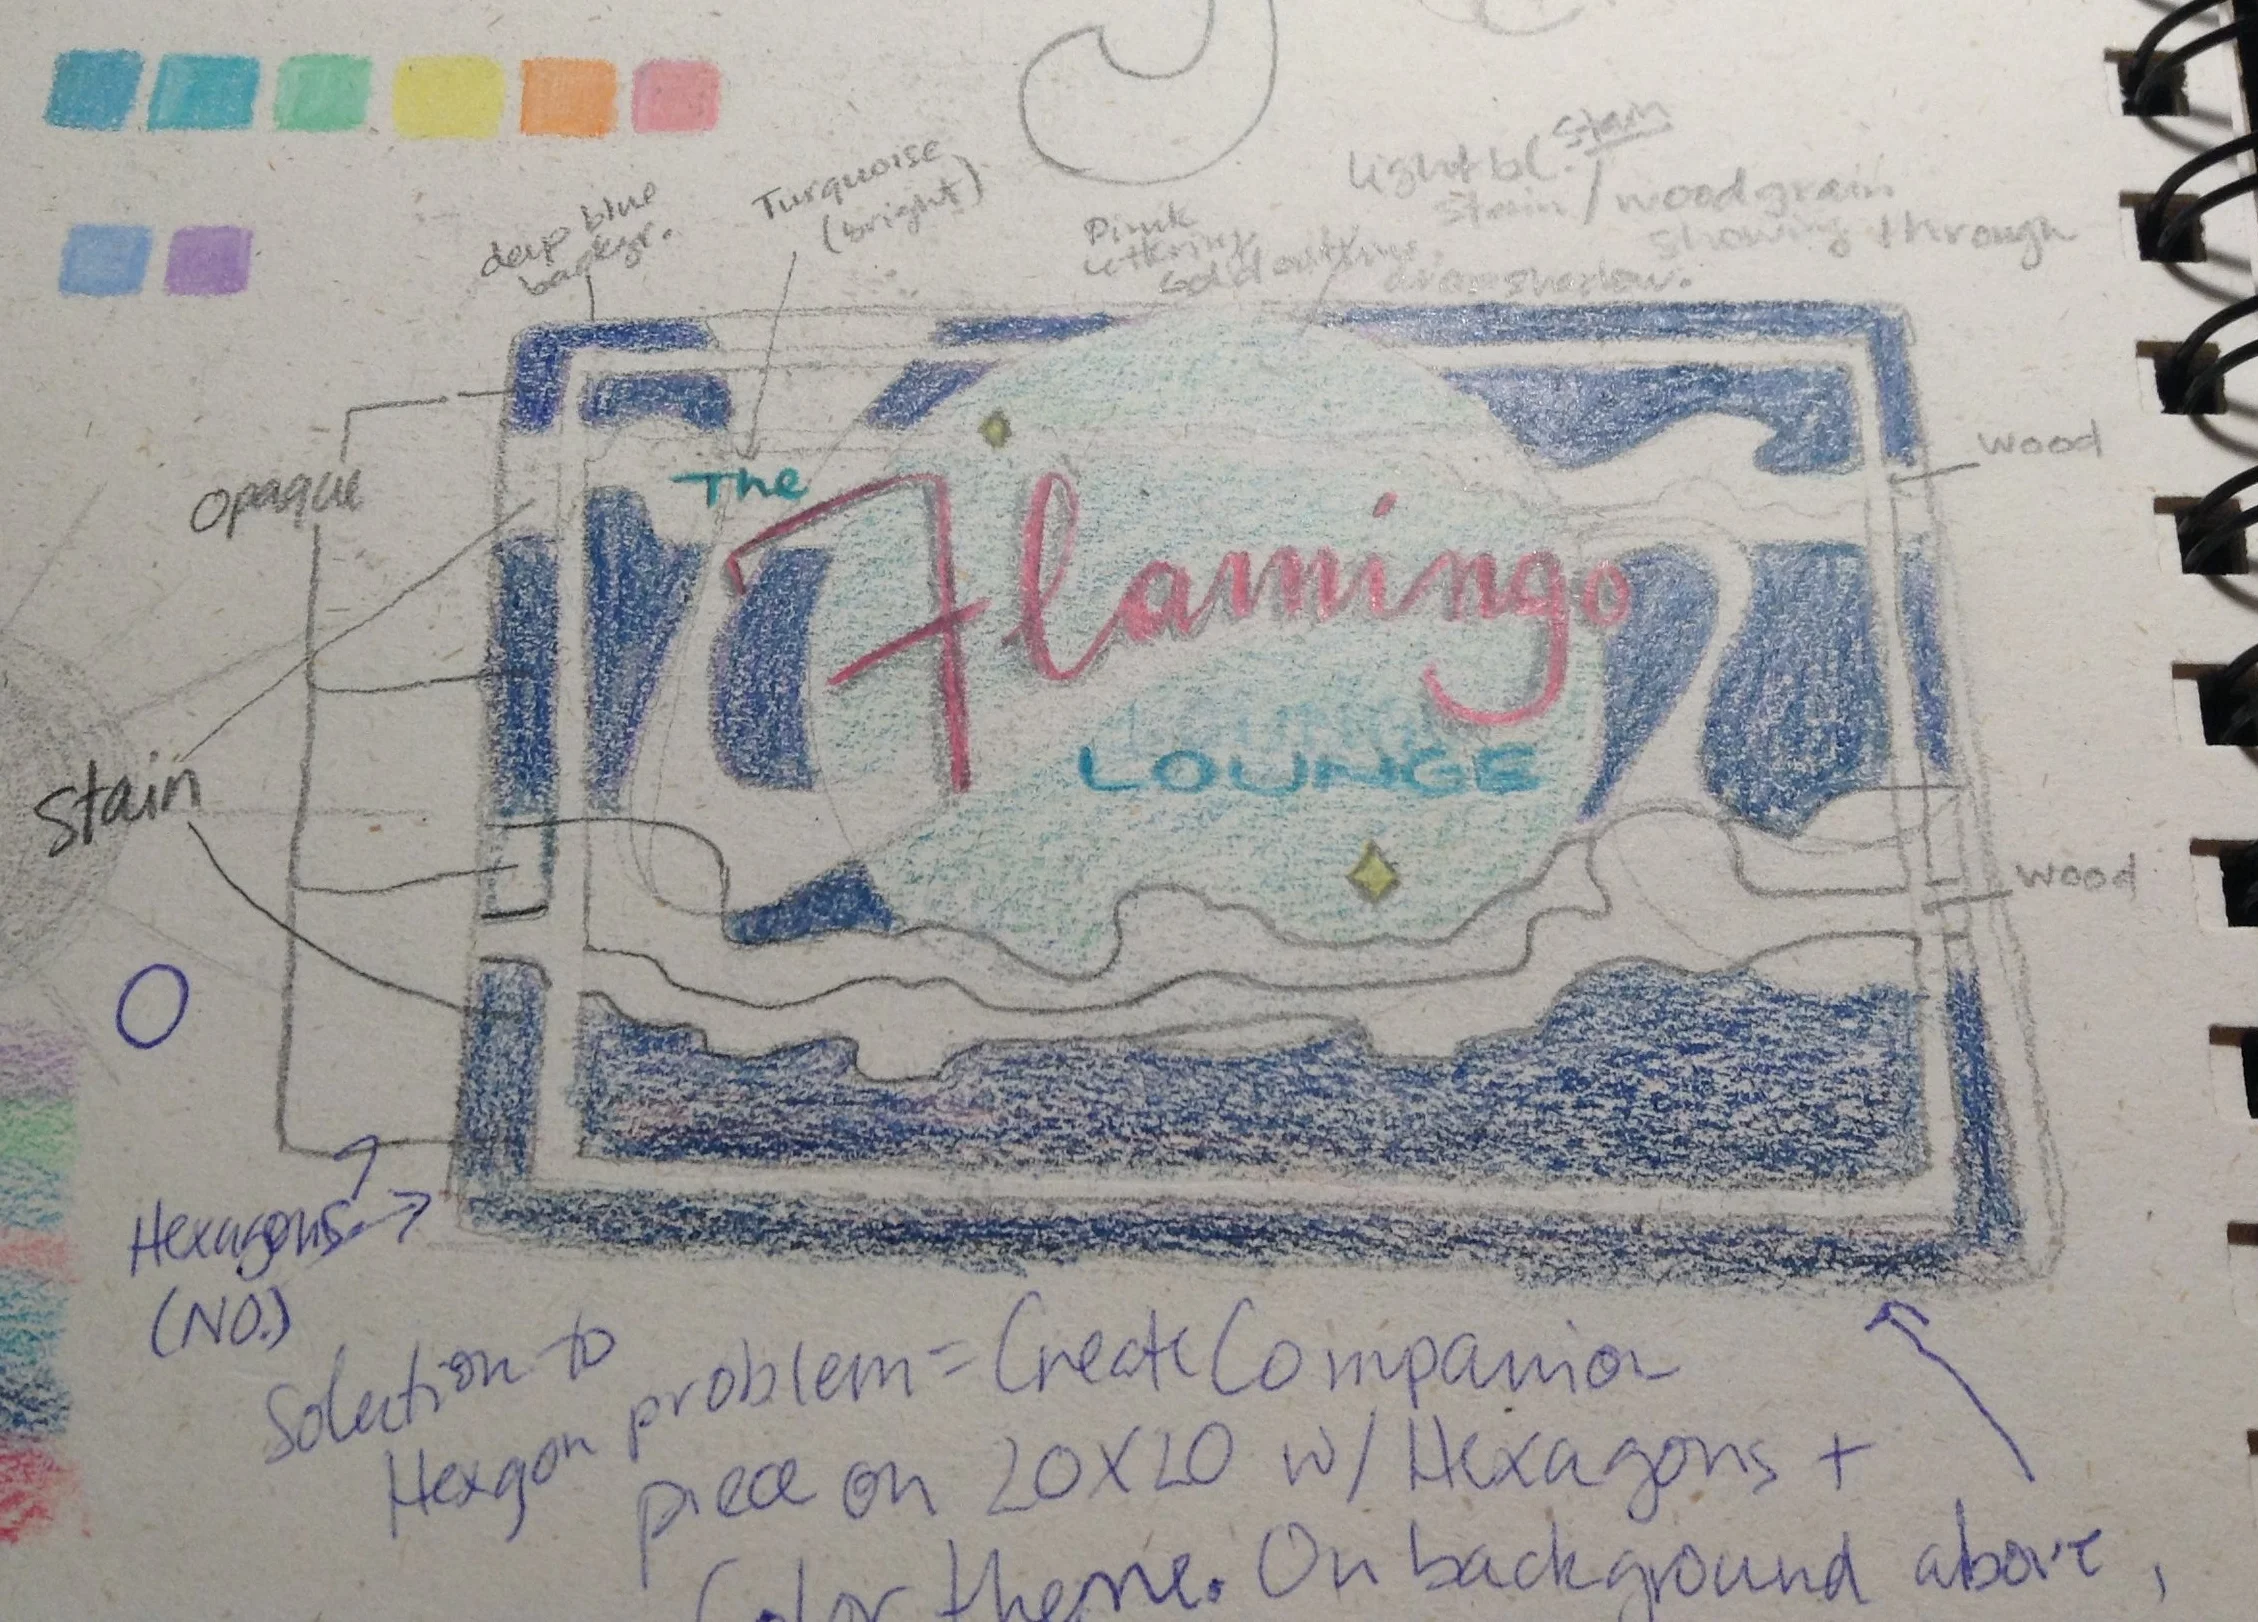 deep blue
backgr.
Turquoise
(bright)
Pink
lettering
Gold outline,
dropshadow.
Light bl. stain
Stain / woodgrain
showing through
Opaque
Stain
wood
wood
The
Flamingo
LOUNGE
Hexagons
(NO.)
Solution to
Hexgon problem = Create Companion
piece on 20X20 w/ Hexagons +
Color theme. On background above,